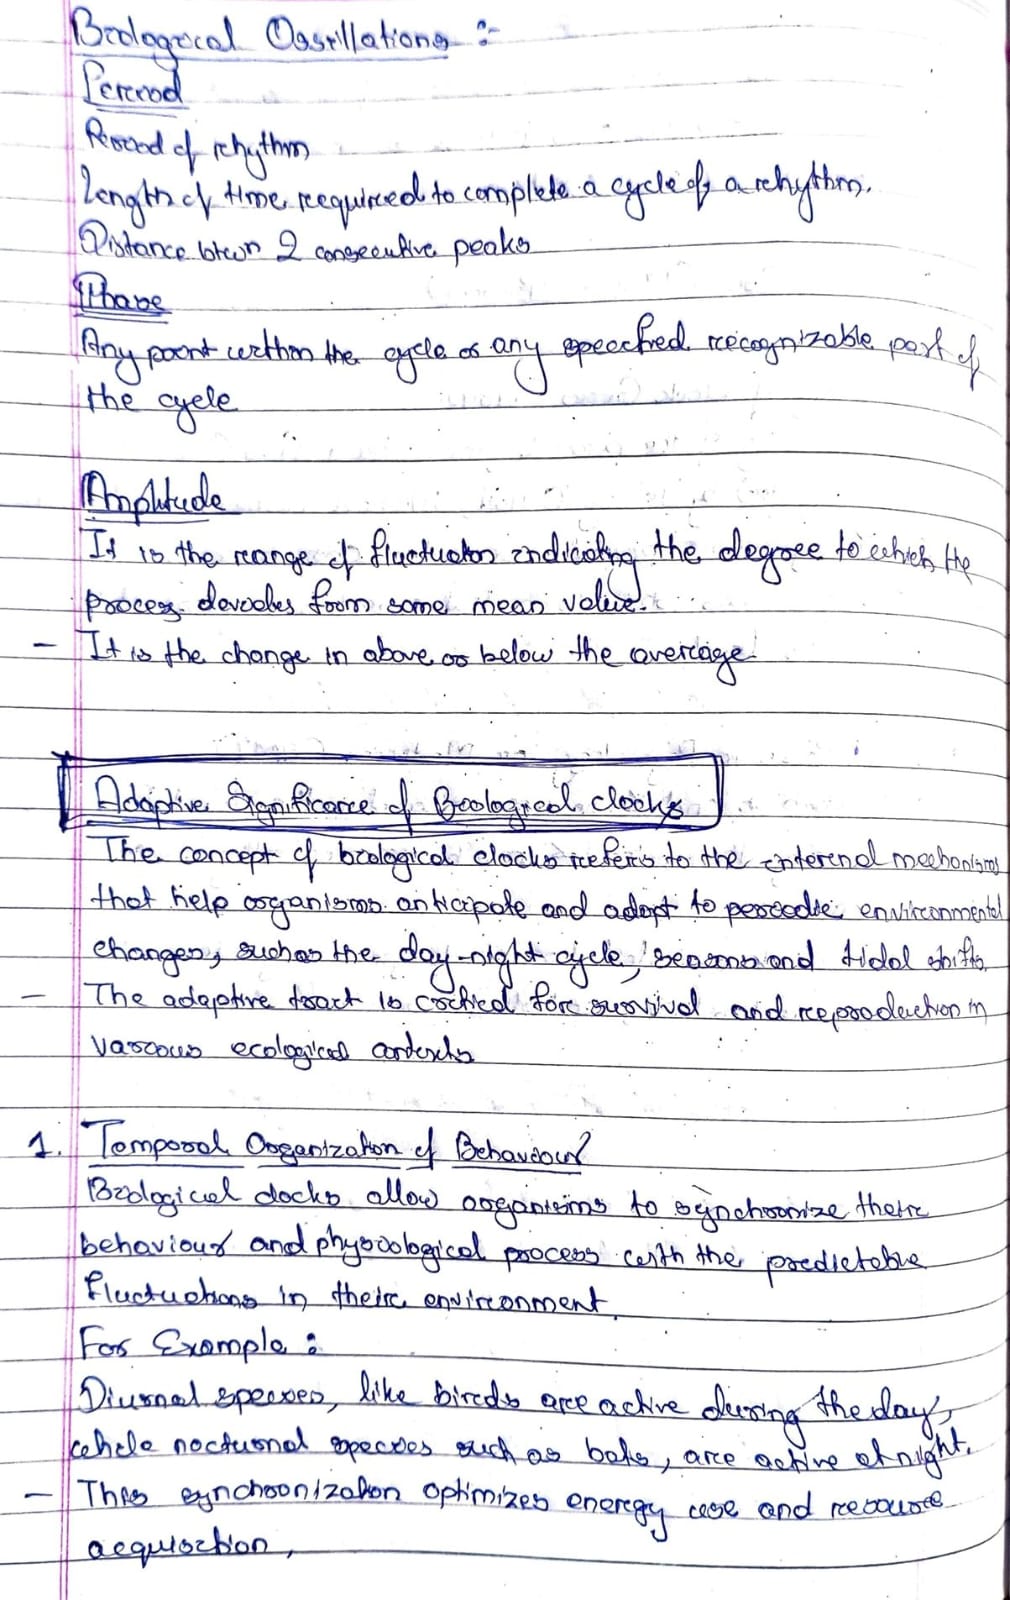 Biological Ossillations :-
Period
Period of rhythm
Length of time required to complete a cycle of a rhythm.
Distance btwn 2 consecutive peaks
Phase
Any point within the cycle or any specified recognizable part of
the cycle
Amplitude
It is the range of fluctuation indicating the degree to which the
process deviates from some mean value.
- It is the change in above or below the average
Adaptive Significance of Biological clocks
The concept of biological clocks refers to the internal mechanisms
that help organisms anticipate and adapt to periodic environmental
changes, such as the day-night cycle, seasons and tidal shifts.
- The adaptive trait is critical for survival and reproduction in
various ecological contexts
1. Temporal Organization of Behaviour
Biological clocks allow organisms to synchronize their
behaviour and physiological process with the predictable
fluctuations in their environment.
For Example :
Diurnal species, like birds are active during the day,
while nocturnal species such as bats, are active at night.
- This synchronization optimizes energy use and resource
acquisition,